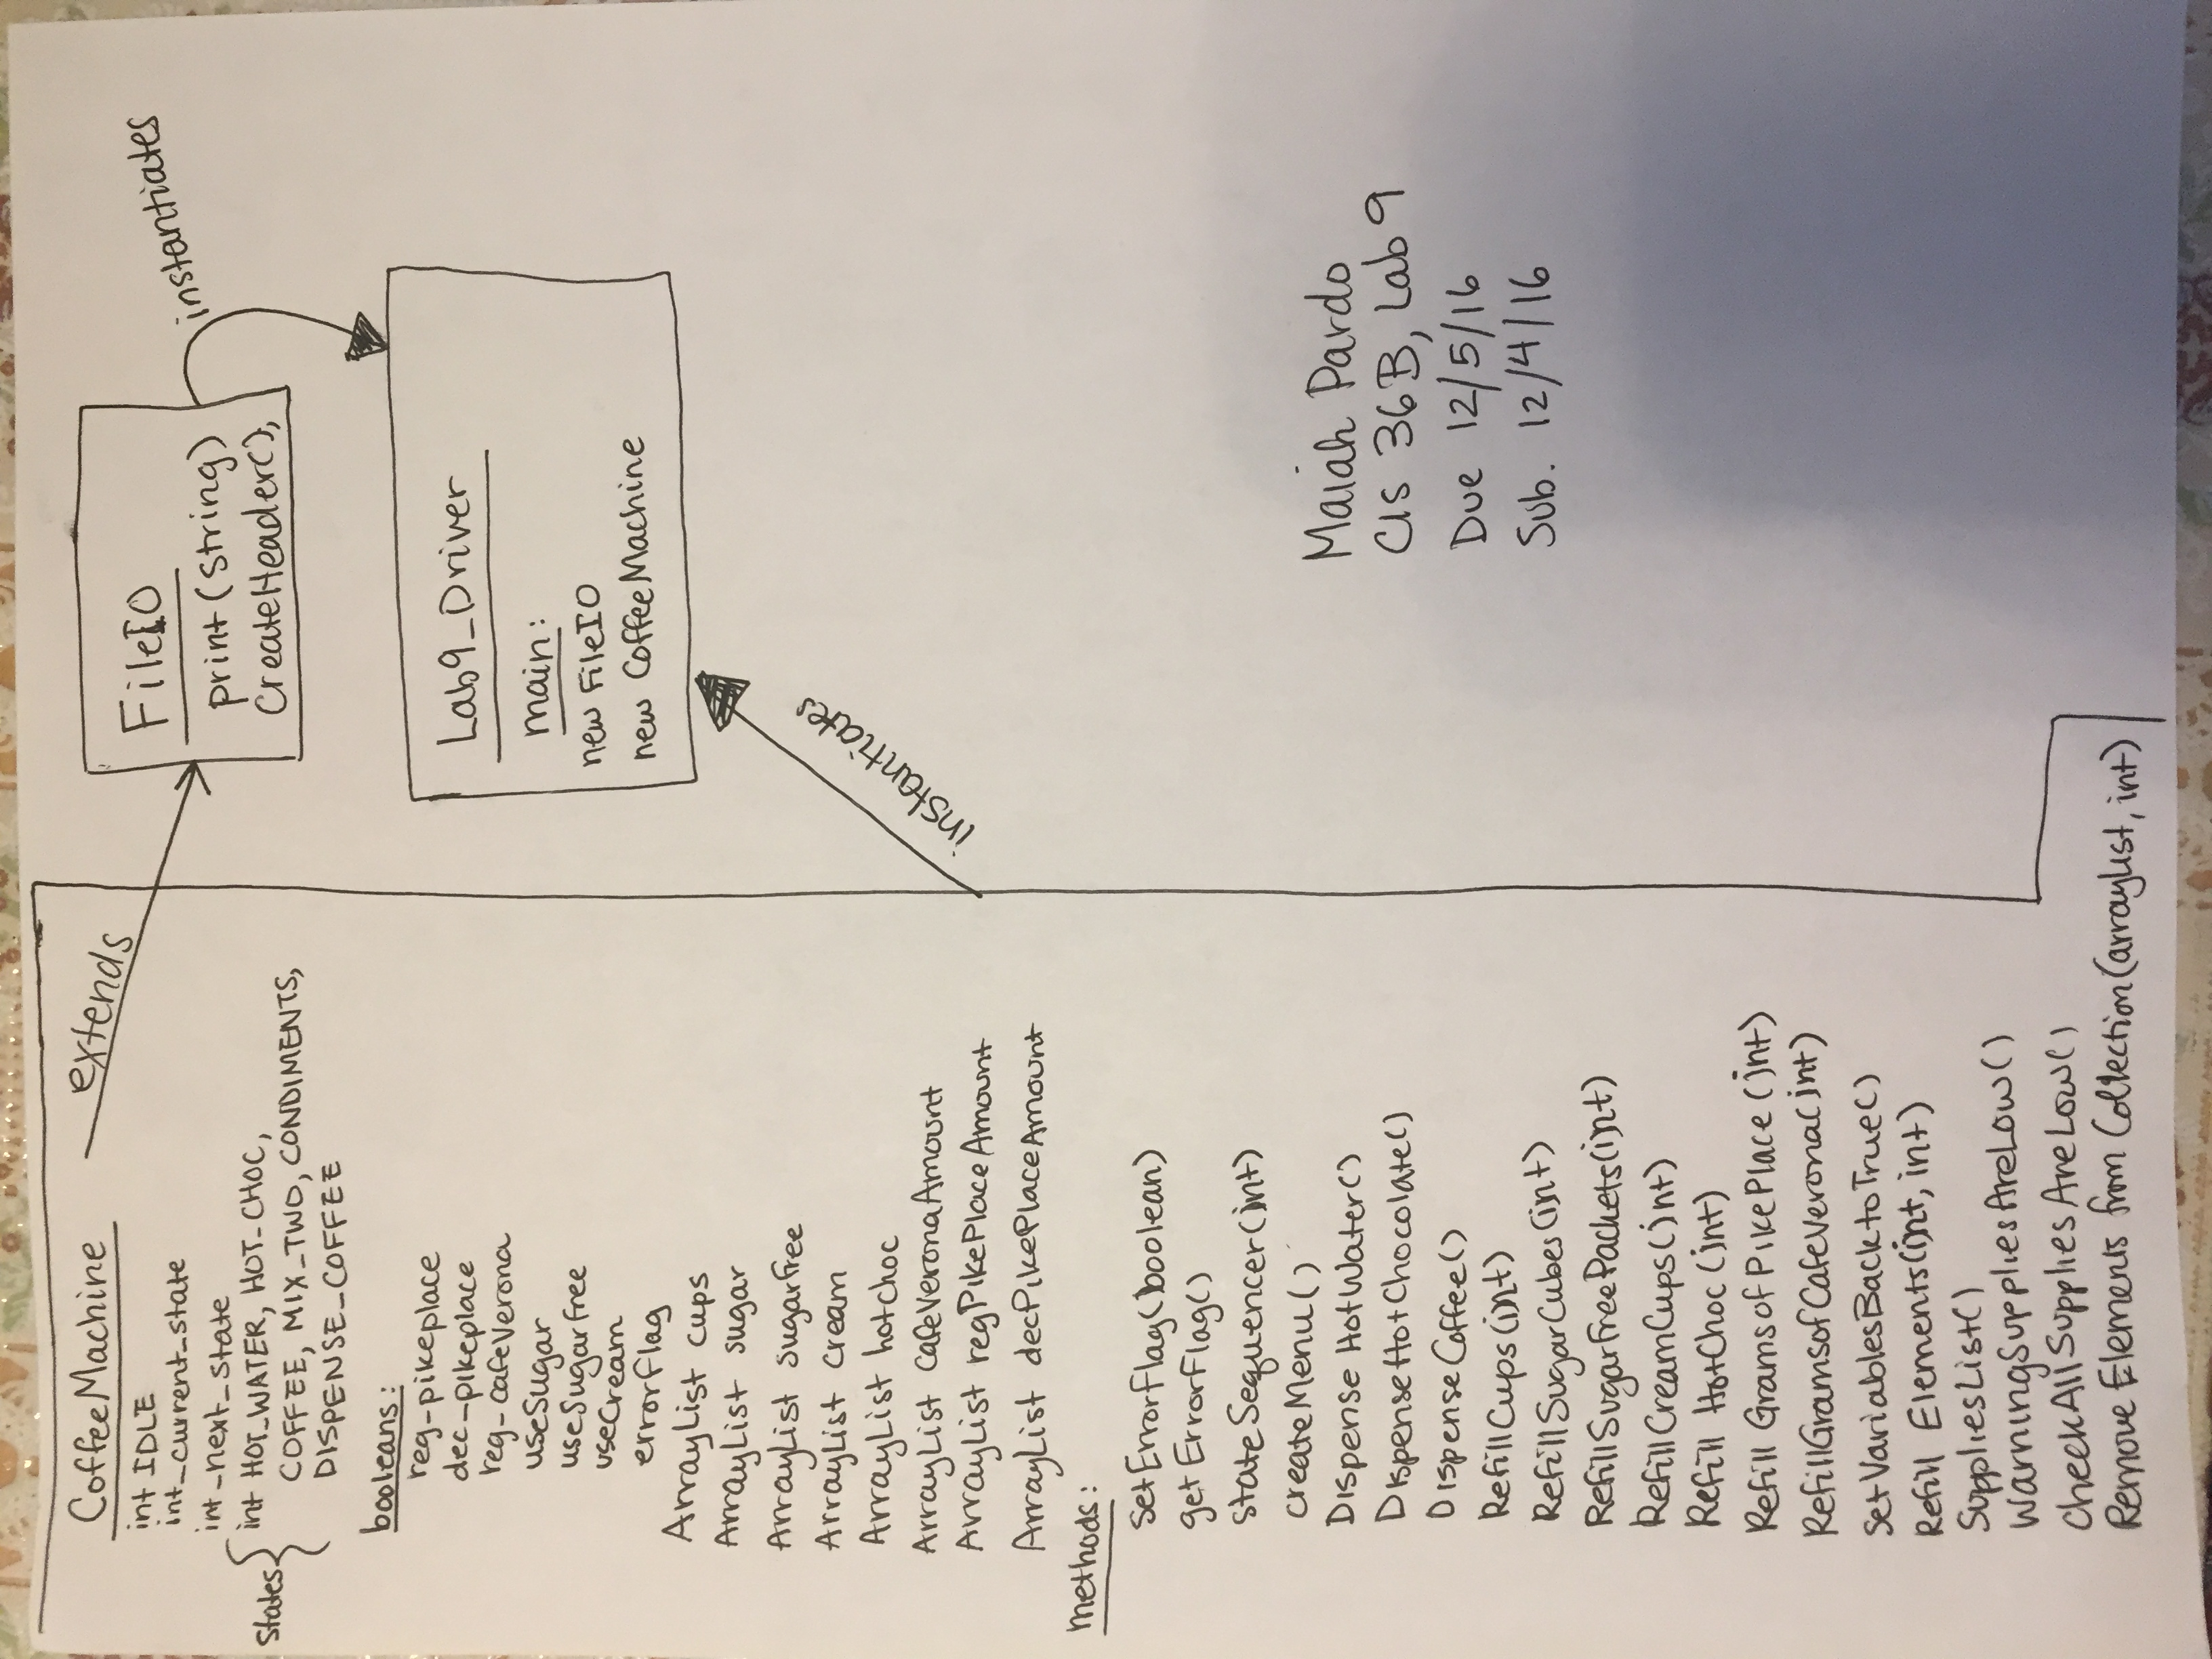 CoffeeMachine
int IDLE
int_current_state
int_next_state
states
int HOT_WATER, HOT_CHOC,
COFFEE, MIX_TWO, CONDIMENTS,
DISPENSE_COFFEE
booleans:
reg_pikeplace
dec_pikeplace
reg_cafeVerona
useSugar
useSugarfree
useCream
errorflag
ArrayList cups
ArrayList sugar
ArrayList sugarfree
ArrayList cream
ArrayList hotchoc
ArrayList CafeVeronaAmount
ArrayList regPikePlaceAmount
ArrayList decPikePlaceAmount
methods:
SetErrorFlag(boolean)
getErrorFlag()
stateSequencer(int)
createMenu()
DispenseHotWater()
DispenseHotChocolate()
DispenseCoffee()
RefillCups(int)
RefillSugarCubes(int)
RefillSugarfreePackets(int)
RefillCreamCups(int)
Refill HotChoc(int)
Refill GramsofPikePlace(int)
RefillGramsofCafeVerona(int)
SetVariablesBacktoTrue()
Refill Elements(int, int)
SuppliesList()
WarningSuppliesAreLow()
CheckAllSuppliesAreLow()
Remove Elements from Collection(arraylist, int)
extends
FileIO
print(string)
CreateHeader();
instantiates
Lab9_Driver
main:
new FileIO
new CoffeeMachine
instantiates
Maiah Pardo
CIS 36B, Lab 9
Due 12/5/16
Sub. 12/4/16